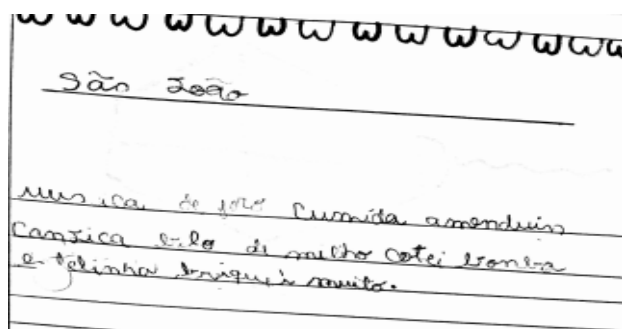 São João
musica de foró Cumida amenduin
Canjica bolo de milho sotei bomba
e folinha briquei muito.